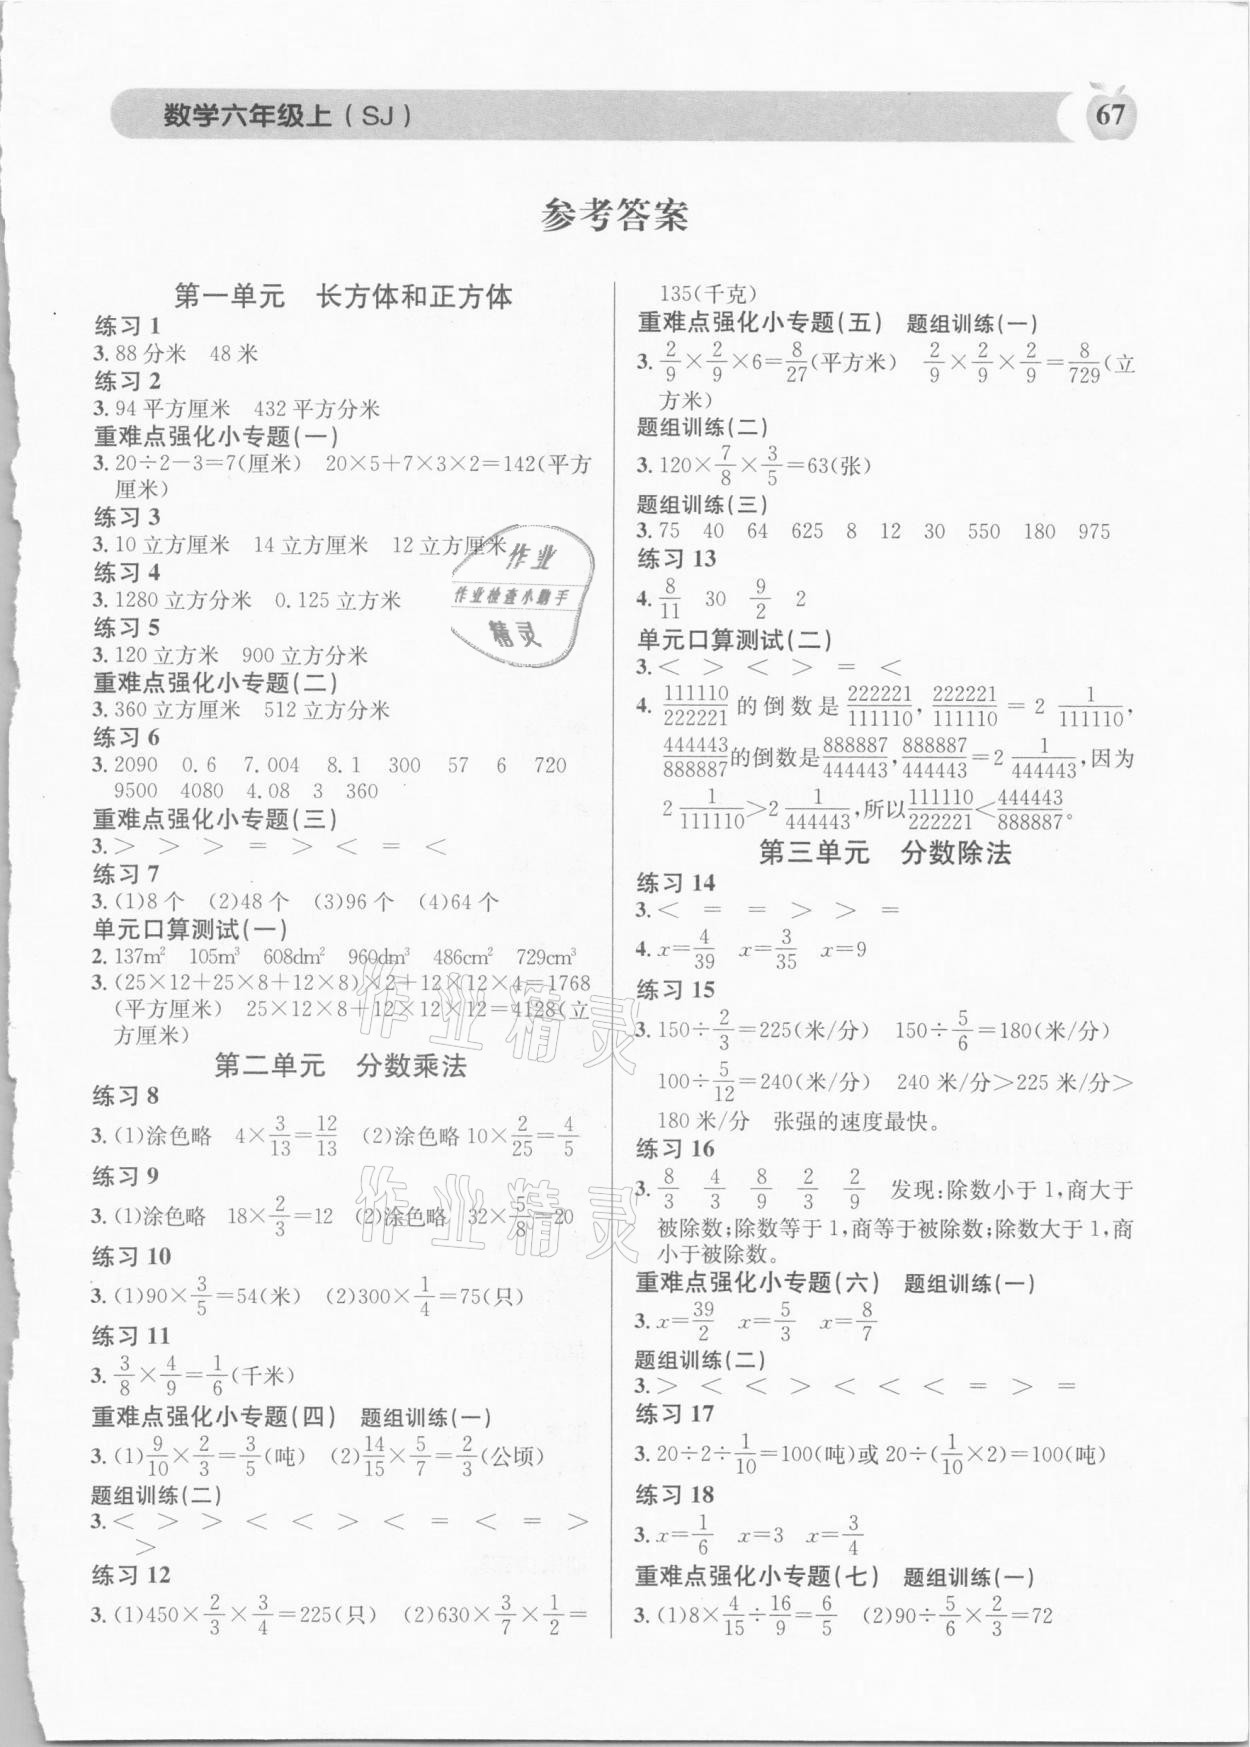 数学六年级上(SJ)
67
参考答案
第一单元 长方体和正方体
练习1
3. 88分米 48米
练习2
3. 94平方厘米 432平方分米
重难点强化小专题(一)
3. 20÷2-3=7(厘米) 20×5+7×3×2=142(平方
厘米)
练习3
3. 10立方厘米 14立方厘米 12立方厘米
练习4
3. 1280立方分米 0.125立方米
练习5
3. 120立方米 900立方分米
重难点强化小专题(二)
3. 360立方厘米 512立方分米
练习6
3. 2090 0.6 7.004 8.1 300 57 6 720
9500 4080 4.08 3 360
重难点强化小专题(三)
3. > > > = > < = <
练习7
3. (1)8个 (2)48个 (3)96个 (4)64个
单元口算测试(一)
2. 137m² 105m³ 608dm² 960dm³ 486cm² 729cm³
3. (25×12+25×8+12×8)×2+12×12×4=1768
(平方厘米) 25×12×8+12×12×12=4128(立
方厘米)
第二单元 分数乘法
练习8
3. (1)涂色略 4×3/13=12/13 (2)涂色略 10×2/25=4/5
练习9
3. (1)涂色略 18×2/3=12 (2)涂色略 32×5/8=20
练习10
3. (1)90×3/5=54(米) (2)300×1/4=75(只)
练习11
3. 3/8×4/9=1/6(千米)
重难点强化小专题(四) 题组训练(一)
3. (1)9/10×2/3=3/5(吨) (2)14/15×5/7=2/3(公顷)
题组训练(二)
3. < > > < < > < = < = >
>
练习12
3. (1)450×2/3×3/4=225(只) (2)630×3/7×1/2=
135(千克)
重难点强化小专题(五) 题组训练(一)
3. 2/9×2/9×6=8/27(平方米) 2/9×2/9×2/9=8/729(立
方米)
题组训练(二)
3. 120×7/8×3/5=63(张)
题组训练(三)
3. 75 40 64 625 8 12 30 550 180 975
练习13
4. 8/11 30 9/2 2
单元口算测试(二)
3. < > < > = <
4. 111110/222221的倒数是222221/111110,222221/111110=2 1/111110,
444443/888887的倒数是888887/444443,888887/444443=2 1/444443,因为
2 1/111110>2 1/444443,所以111110/222221<444443/888887。
第三单元 分数除法
练习14
3. < = = > > =
4. x=4/39 x=3/35 x=9
练习15
3. 150÷2/3=225(米/分) 150÷5/6=180(米/分)
100÷5/12=240(米/分) 240米/分>225米/分>
180米/分 张强的速度最快。
练习16
3. 8/3 4/3 8/9 2/3 2/9 发现:除数小于1,商大于
被除数;除数等于1,商等于被除数;除数大于1,商
小于被除数。
重难点强化小专题(六) 题组训练(一)
3. x=39/2 x=5/3 x=8/7
题组训练(二)
3. > < < > < < < = > =
练习17
3. 20÷2÷1/10=100(吨)或20÷(1/10×2)=100(吨)
练习18
3. x=1/6 x=3 x=3/4
重难点强化小专题(七) 题组训练(一)
3. (1)8×4/15÷16/9=6/5 (2)90÷5/6×2/3=72
作业
作业检查小助手
精灵
作业精灵
作业精灵